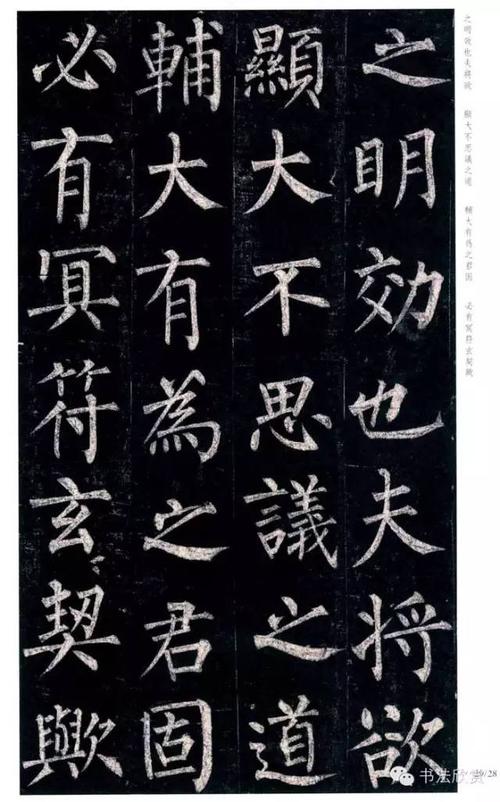 之明效也夫将欲
顯大不思議之道
輔大有為之君固
必有冥符玄契歟
之明效也夫将欲 顯大不思議之道 輔大有為之君固 必有冥符玄契歟
19/28
书法欣赏